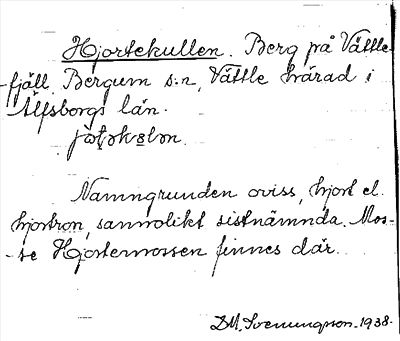 Hjortekullen. Berg på Vättle-
fjäll, Bergum s:n, Vättle härad i
Älfsborgs län.
Namngrunden oviss, hjort el.
hjortron, sannolikt sistnämnda. Mos-
se Hjortemossen finnes där.
D.M. Svenungson. 1938.